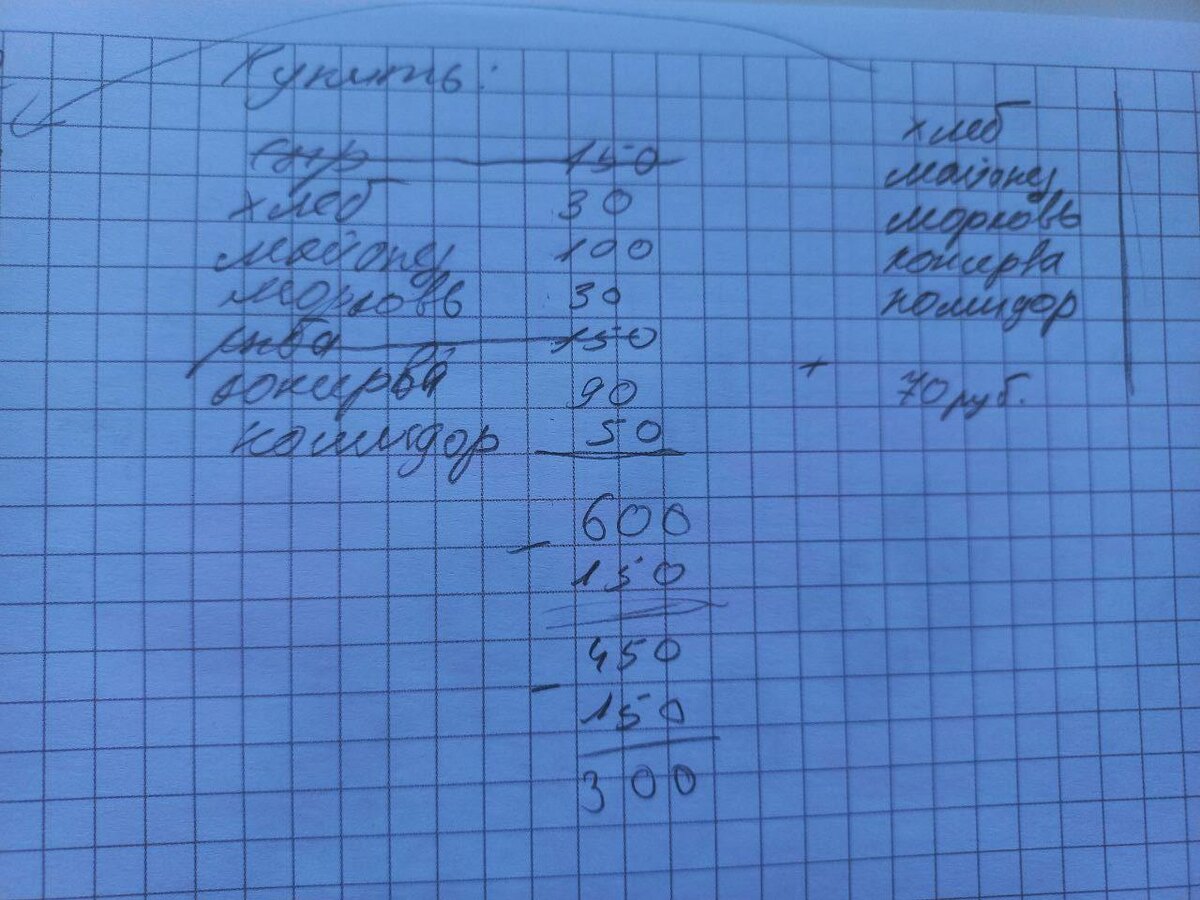 Купить:
сыр 150
хлеб 30
майонез 100
морковь 30
рыба 150
консерва 90
помидор 50
600
- 150
450
- 150
300
хлеб
майонез
морковь
консерва
помидор
+ 70 руб.